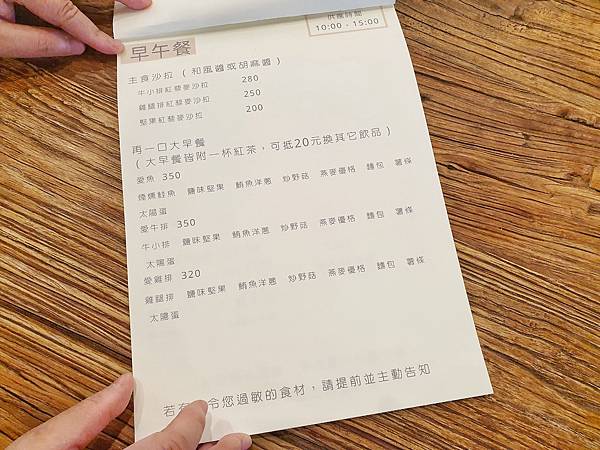 供應時間
10:00 - 15:00
早午餐
主食沙拉 ( 和風醬或胡麻醬 )
牛小排紅藜麥沙拉 280
雞腿排紅藜麥沙拉 250
堅果紅藜麥沙拉 200
再一口大早餐
( 大早餐皆附一杯紅茶，可抵20元換其它飲品 )
愛魚 350
煙燻鮭魚 鹽味堅果 鮪魚洋蔥 炒野菇 燕麥優格 麵包 薯條
太陽蛋
愛牛排 350
牛小排 鹽味堅果 鮪魚洋蔥 炒野菇 燕麥優格 麵包 薯條
太陽蛋
愛雞排 320
雞腿排 鹽味堅果 鮪魚洋蔥 炒野菇 燕麥優格 麵包 薯條
太陽蛋
若 令您過敏的食材，請提前並主動告知